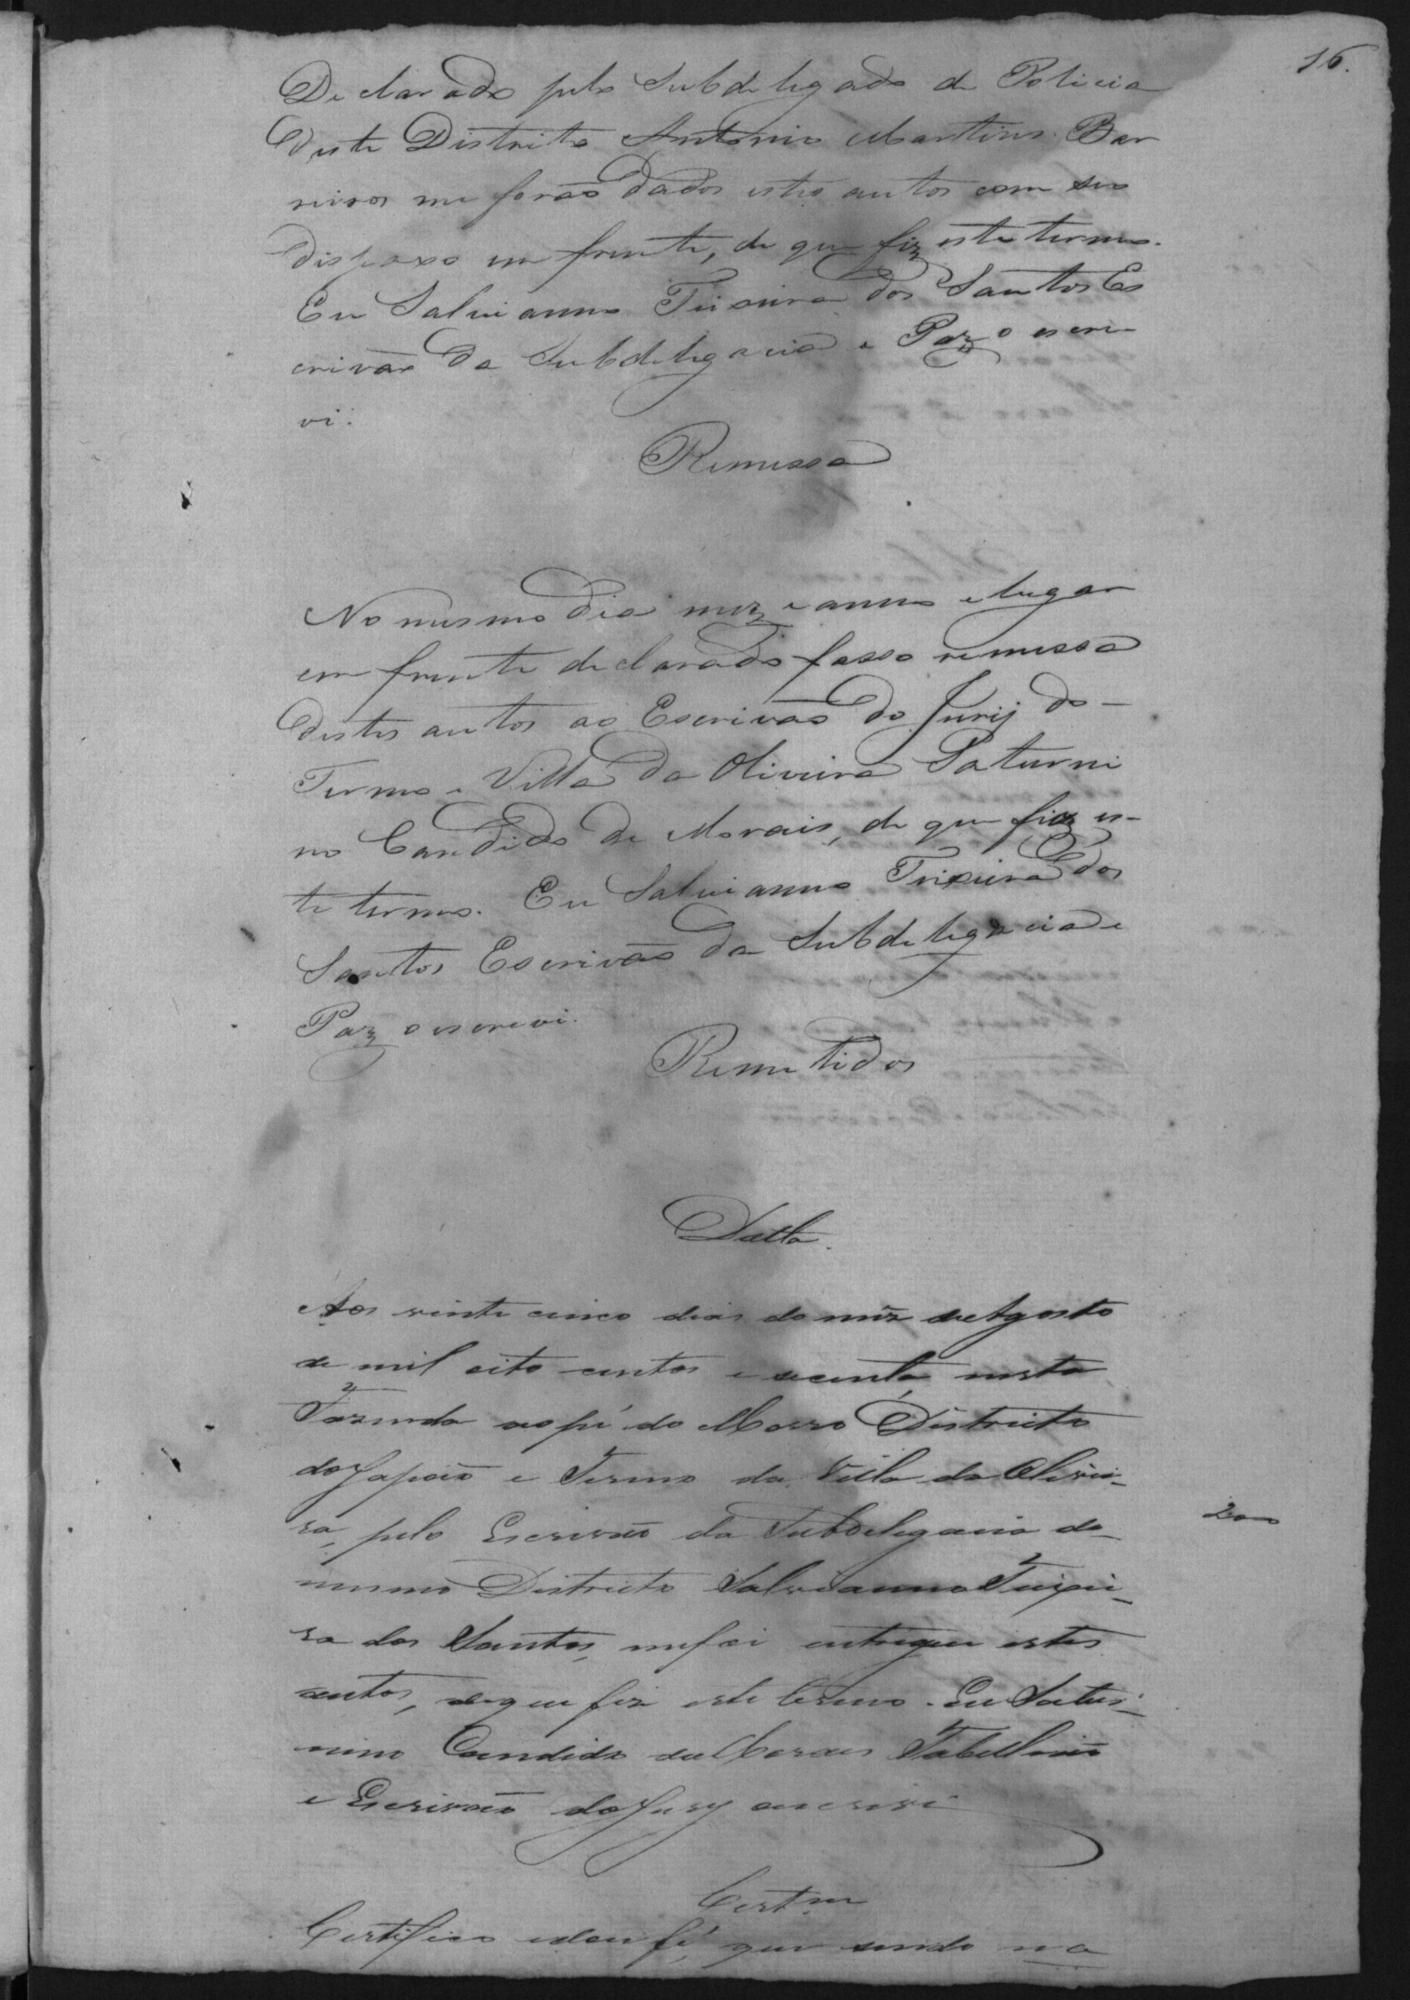 16.
Declarado pelo Subdelegado de Policia
deste Distrito Antonio Martins Bar
reiros me forão dados estes autos com seo
dispaxo em frente, de que fiz este termo.
Eu Salvianno Teixeira dos Santos Es
crivão da Subdelegacia e Paz o escre
vi.
Remessa
No mesmo dia mez e anno e lugar
em frente declarado fasso remessa
destes autos ao Escrivão do Jurij do
Termo e Villa da Oliveira Saturni
no Candido de Morais, de que fiz es-
te termo. Eu Salvianno Teixeira dos
Santos Escrivão da Subdelegacia e
Paz o escrevi.
Remetidos
Datta.
Aos vinte cinco dias do mez de Agosto
de mil oito centos e secenta, nesta
Fazenda ao pé do Morro Districto
do Japão e Termo da Villa da Olivei-
ra, pelo Escrivão da Subdelegacia do
mesmo Districto Salvianno Teixei-
ra dos Santos, me foi entregue estes
autos, de que fiz este termo. Eu Satur-
nino Candido de Moraes Tabellião
e Escrivão do Jury o escrevi
200
Certam
Certifico e dou fé, que sendo na